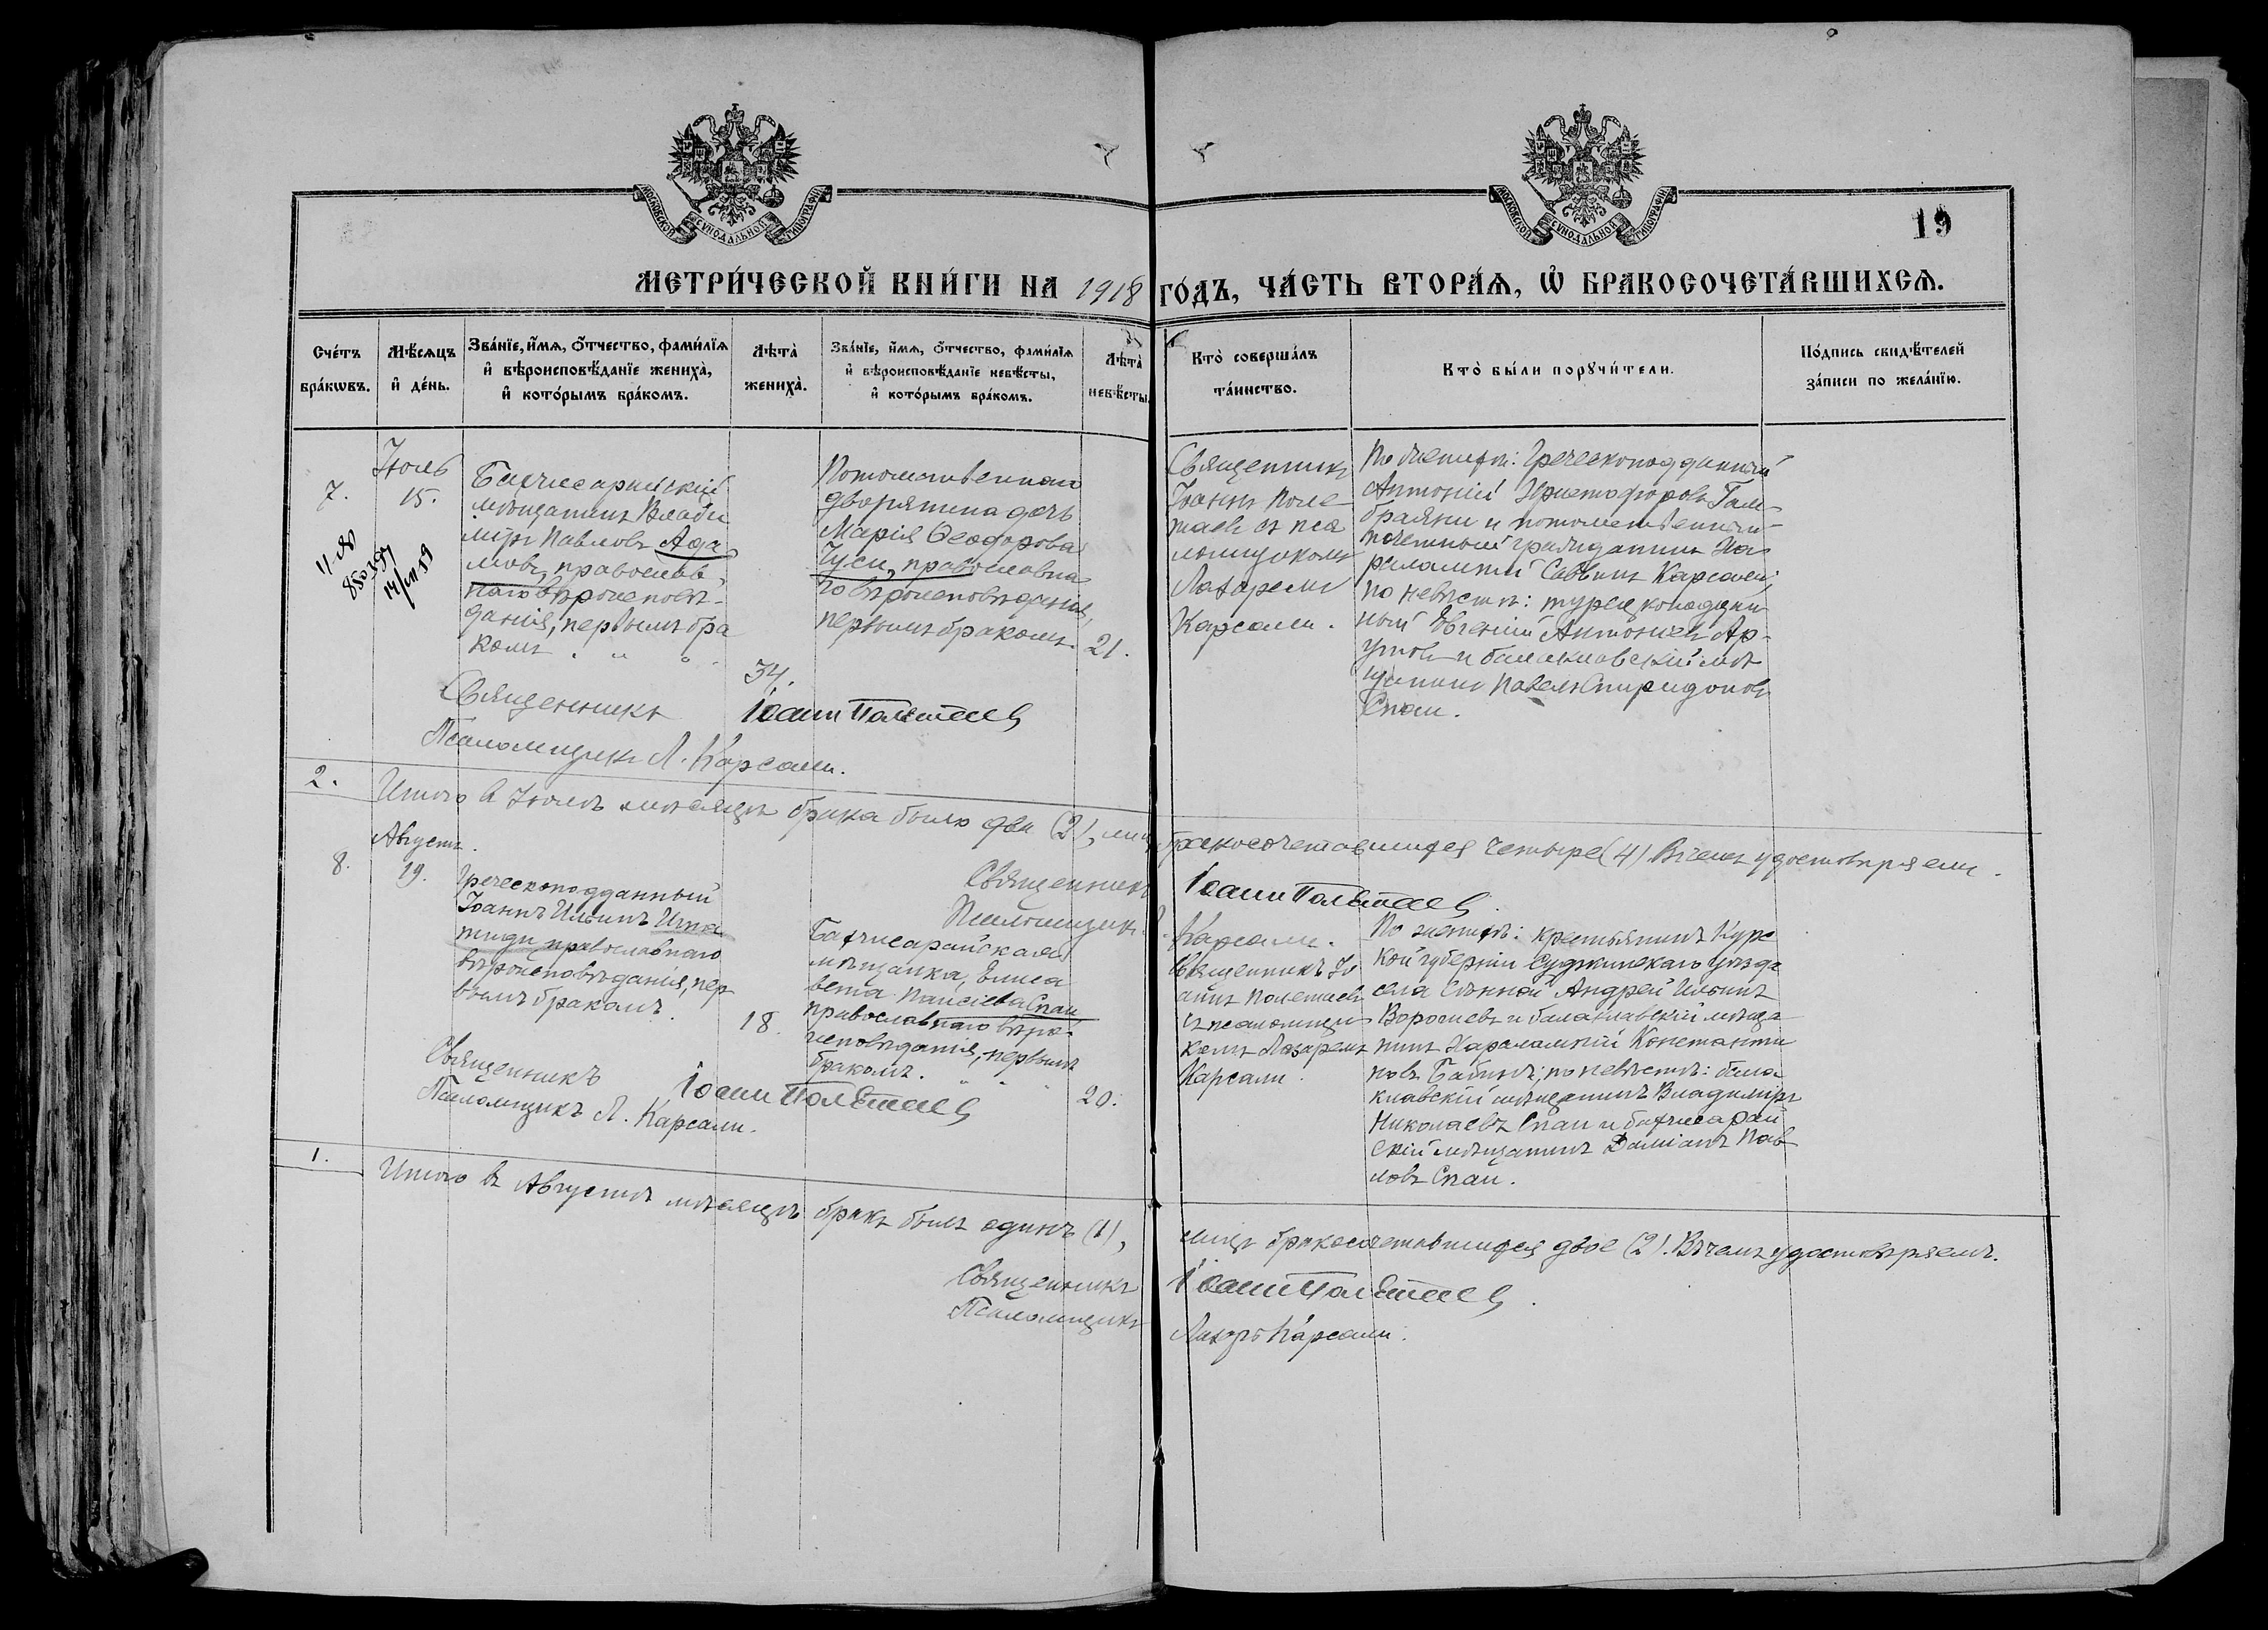 19
МОСКОВСКОЙ СѴНОДАЛЬНОЙ ТИПОГРАФІИ
МОСКОВСКОЙ СѴНОДАЛЬНОЙ ТИПОГРАФІИ
МЕТРИ́ЧЕСКОЙ КНИ́ГИ НА 1918 ГО́ДЪ, ЧА́СТЬ ВТОРА́Ѧ, Ѡ҆ БРАКОСОЧЕТА́ВШИХСѦ.
Сче́тъ
бра́кѡвъ.
Мѣ́сѧцъ
и҆ де́нь.
Зва́нїе, и҆́мѧ, о҆́тчество, фами́лїѧ
и҆ вѣроисповѣ́данїе жениха̀,
и҆ кото́рымъ бра́комъ.
Лѣта̀
жениха̀.
Зва́нїе, и҆́мѧ, о҆́тчество, фами́лїѧ
и҆ вѣроисповѣ́данїе невѣ́сты,
и҆ кото́рымъ бра́комъ.
Лѣта̀
невѣ́сты.
Кто̀ соверша́лъ
та́инство.
Кто̀ бы́ли порꙋчи́тели.
По́дпись свидѣ́телей
за́писи по жела́нїю.
7.
Іюль
15.
Бахчисарайскій
мѣщанинъ Влади
міръ Павловъ Ада
мовъ, православ
наго вѣроисповѣ-
данія, первымъ бра
комъ
34.
Потомственная
дворянина дочь
Марія Ѳеодорова
православна
го вѣроисповѣданія,
первымъ бракомъ.
21.
Священникъ
Іоаннъ Поле
таевъ съ пса
ломщикомъ
Лазаремъ
Карсали.
По женихѣ: Греческоподданный
Антоній Христофоровъ
и потомственный
почетный гражданинъ Ха
рлампій Саввинъ Карсали;
по невѣстѣ: турецкоподдан
ный Евгеній Антоніевъ
и балаклавскій мѣ
щанинъ Павелъ Спиридоновъ
Спаи.
Священникъ Іоаннъ Полетаевъ
Псаломщикъ Л. Карсали.
2.
Итого въ Іюлѣ мѣсяцѣ брака было два (2), лицъ бракосочетавшихся четыре (4). Въ чемъ удостовѣряемъ.
Священникъ Іоаннъ Полетаевъ
Псаломщикъ Л. Карсали.
8.
Августъ.
19.
Греческоподданный
Іоаннъ Ильинъ Игна
тиди, православнаго
вѣроисповѣданія, пер
вымъ бракомъ.
18.
Бахчисарайская
мѣщанка, Елиса
вета Паисіева Спаи
православнаго вѣро
исповѣданія, первымъ
бракомъ.
20.
Священникъ Іо
аннъ Полетаевъ
съ псаломщи
комъ Лазаремъ
Карсали.
По женихѣ: крестьянинъ Курс
кой губерніи Суджинскаго уѣзда
села Андрей Ильинъ
и балаклавскій мѣща
нинъ Харалампій Константи
новъ по невѣстѣ: бала
клавскій мѣщанинъ Владиміръ
Николаевъ Спаи и бахчисарай
скій мѣщанинъ Даміанъ Пав
ловъ Спаи.
Священникъ Іоаннъ Полетаевъ
Псаломщикъ Л. Карсали.
1.
Итого въ Августѣ мѣсяцѣ бракъ былъ одинъ (1), лицъ бракосочетавшихся двое (2). Въ чемъ удостовѣряемъ.
Священникъ Іоаннъ Полетаевъ
Псаломщикъ Лазарь Карсали.